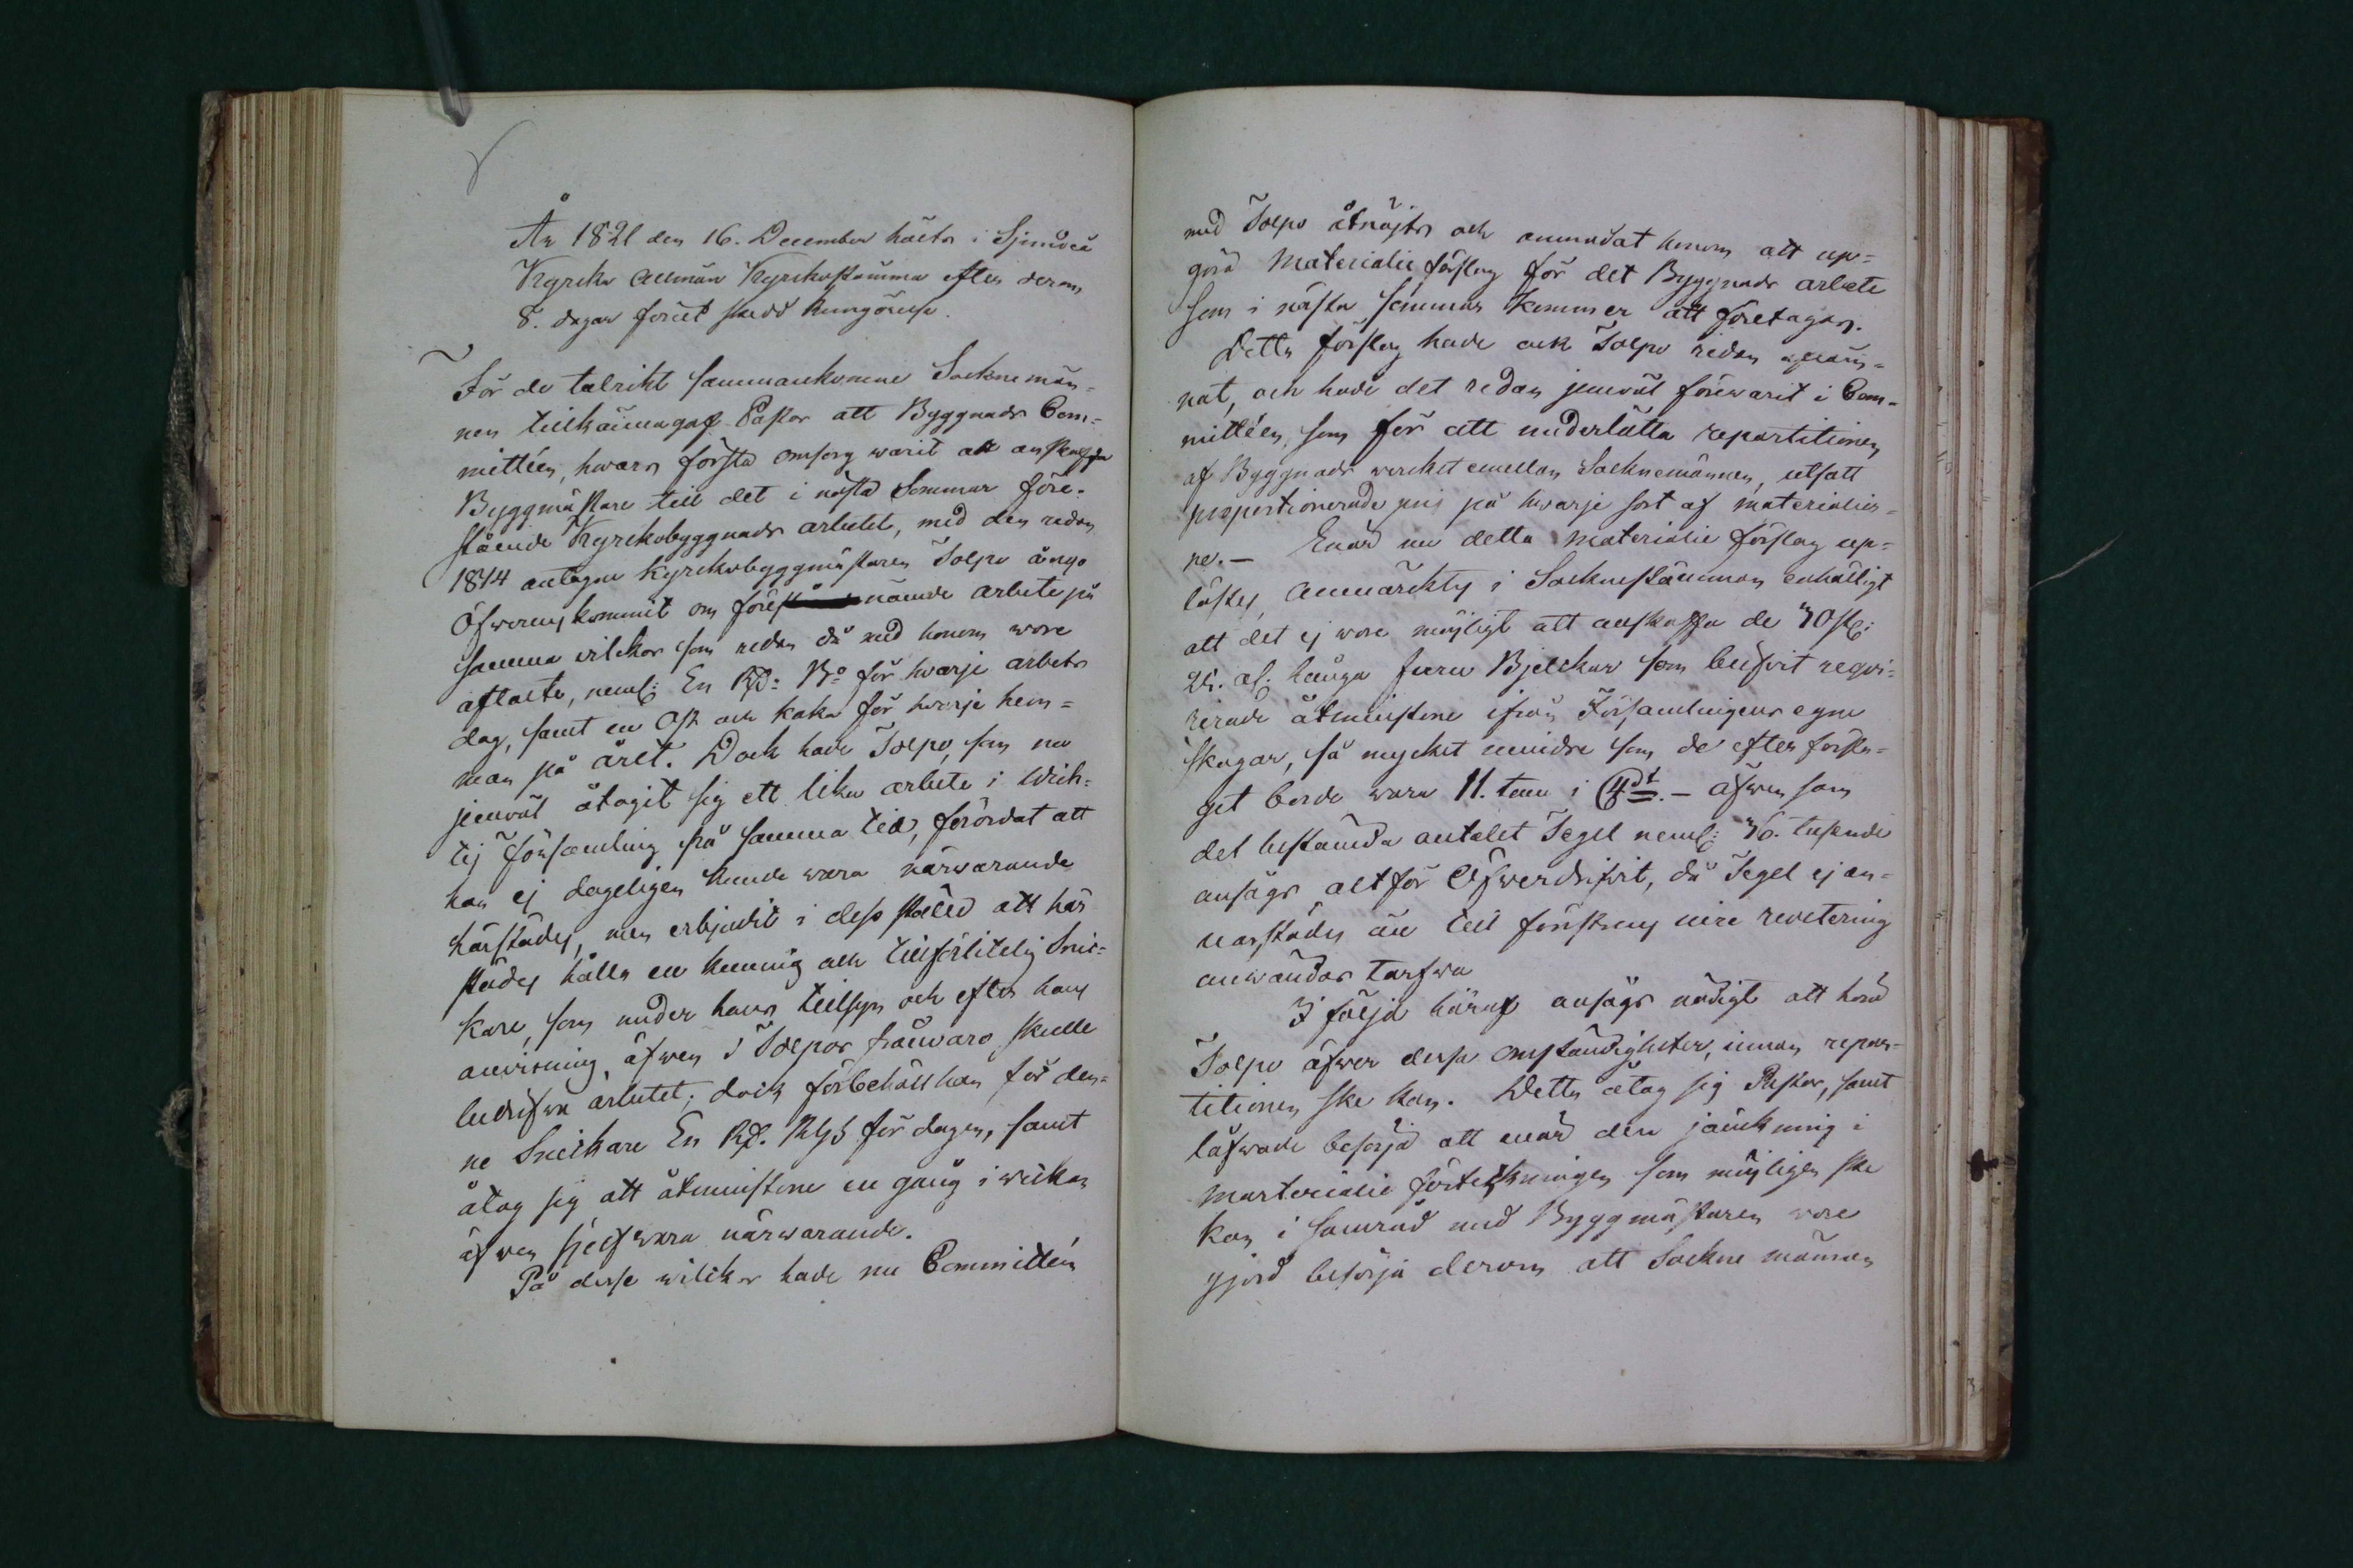 År 1821 den 16. December hölts i Sjundeå
Kyrcka Allmän Kyrckostämma efter derom
8. dagar förut skedd kungörelse.
För de talrikt sammankomne Socknemän-
nen tillkännagaf Pastor att Byggnads Com-
mittéen, hwars första omsorg warit att anskaffa
Byggmästare till det i nästa Sommar före-
stående Kyrckobyggnads arbetet, med den redan
1814 antagne Kyrckobyggmästaren Tolpo ånyo
öfwerenskommit om före nämnde arbete på
samma wilckor som redan då med honom wore
aftalte, neml: En Rd: Bo för hwarje arbets
dag, samt en Ost och kaka för hwarje hem-
man på året. Dock hade Tolpo, som nu
jemwäl åtagit sig ett lika arbete i Wich-
tij Församling på samma tid, förordat att
han ej dageligen kunde wara närwarande
härstädes, men erbjudit i dess ställe att här
städes hålla en kunnig och tillförlitelig Snic-
kare, som under hans tillsyn och efter hans
anvisning, äfwen i Tolpos frånvaro skulle
bedrifwa arbetet; dock förbehöll han för den-
ne Snickare En Rd. Rgs för dagen, samt
åtog sig att åtminstone en gång i wickan
äfwen sjelf wara närwarande.
På desse wilckor hade nu Committéen
med Tolpo åtnöjts och anmodat honom att up-
göra Materialie förslag för det Byggnads arbete
som i nästa sommar kommer att företagas.
Detta förslag hade ock Tolpo redan upläm-
nat, och hade det redan jemwäl förewarit i Com-
mittéen, som för att underlätta repartitionen
af Byggnads wercket emellan Socknemännen, utsatt
proportionerade pris på hwarje sort af materialier-
ne. – Enär nu detta Materialie förslag up-
lästes, anmärktes i Socknestämman enhälligt
att det ej wore möjligt att anskaffa de 70 st:
25. al. långa furu Bjelckar som blifwit reqvi-
rerade åtminstone ifrån Församlingens egne
skogar, så mycket mindre som de efter försla-
get borde wara 11. tum i – äfwen som
det bestämda antalet Tegel neml: 36. tusende
ansågs alt för Öfwerdrifwit, då Tegel ej an-
narstädes än till fönstrens inre revetering
användas tarfwa
I följd häraf ansågs nödigt att höra
Tolpo öfwer dessa omständigheter, innan repar-
titionen ske kan. Detta åtog sig Pastor, samt
låfwade besörja att enär den jämkning i
Materialie förteckningen som möjligen ske
kan i samråd med Byggmästaren wore
gjord besörja derom att Sockne männen